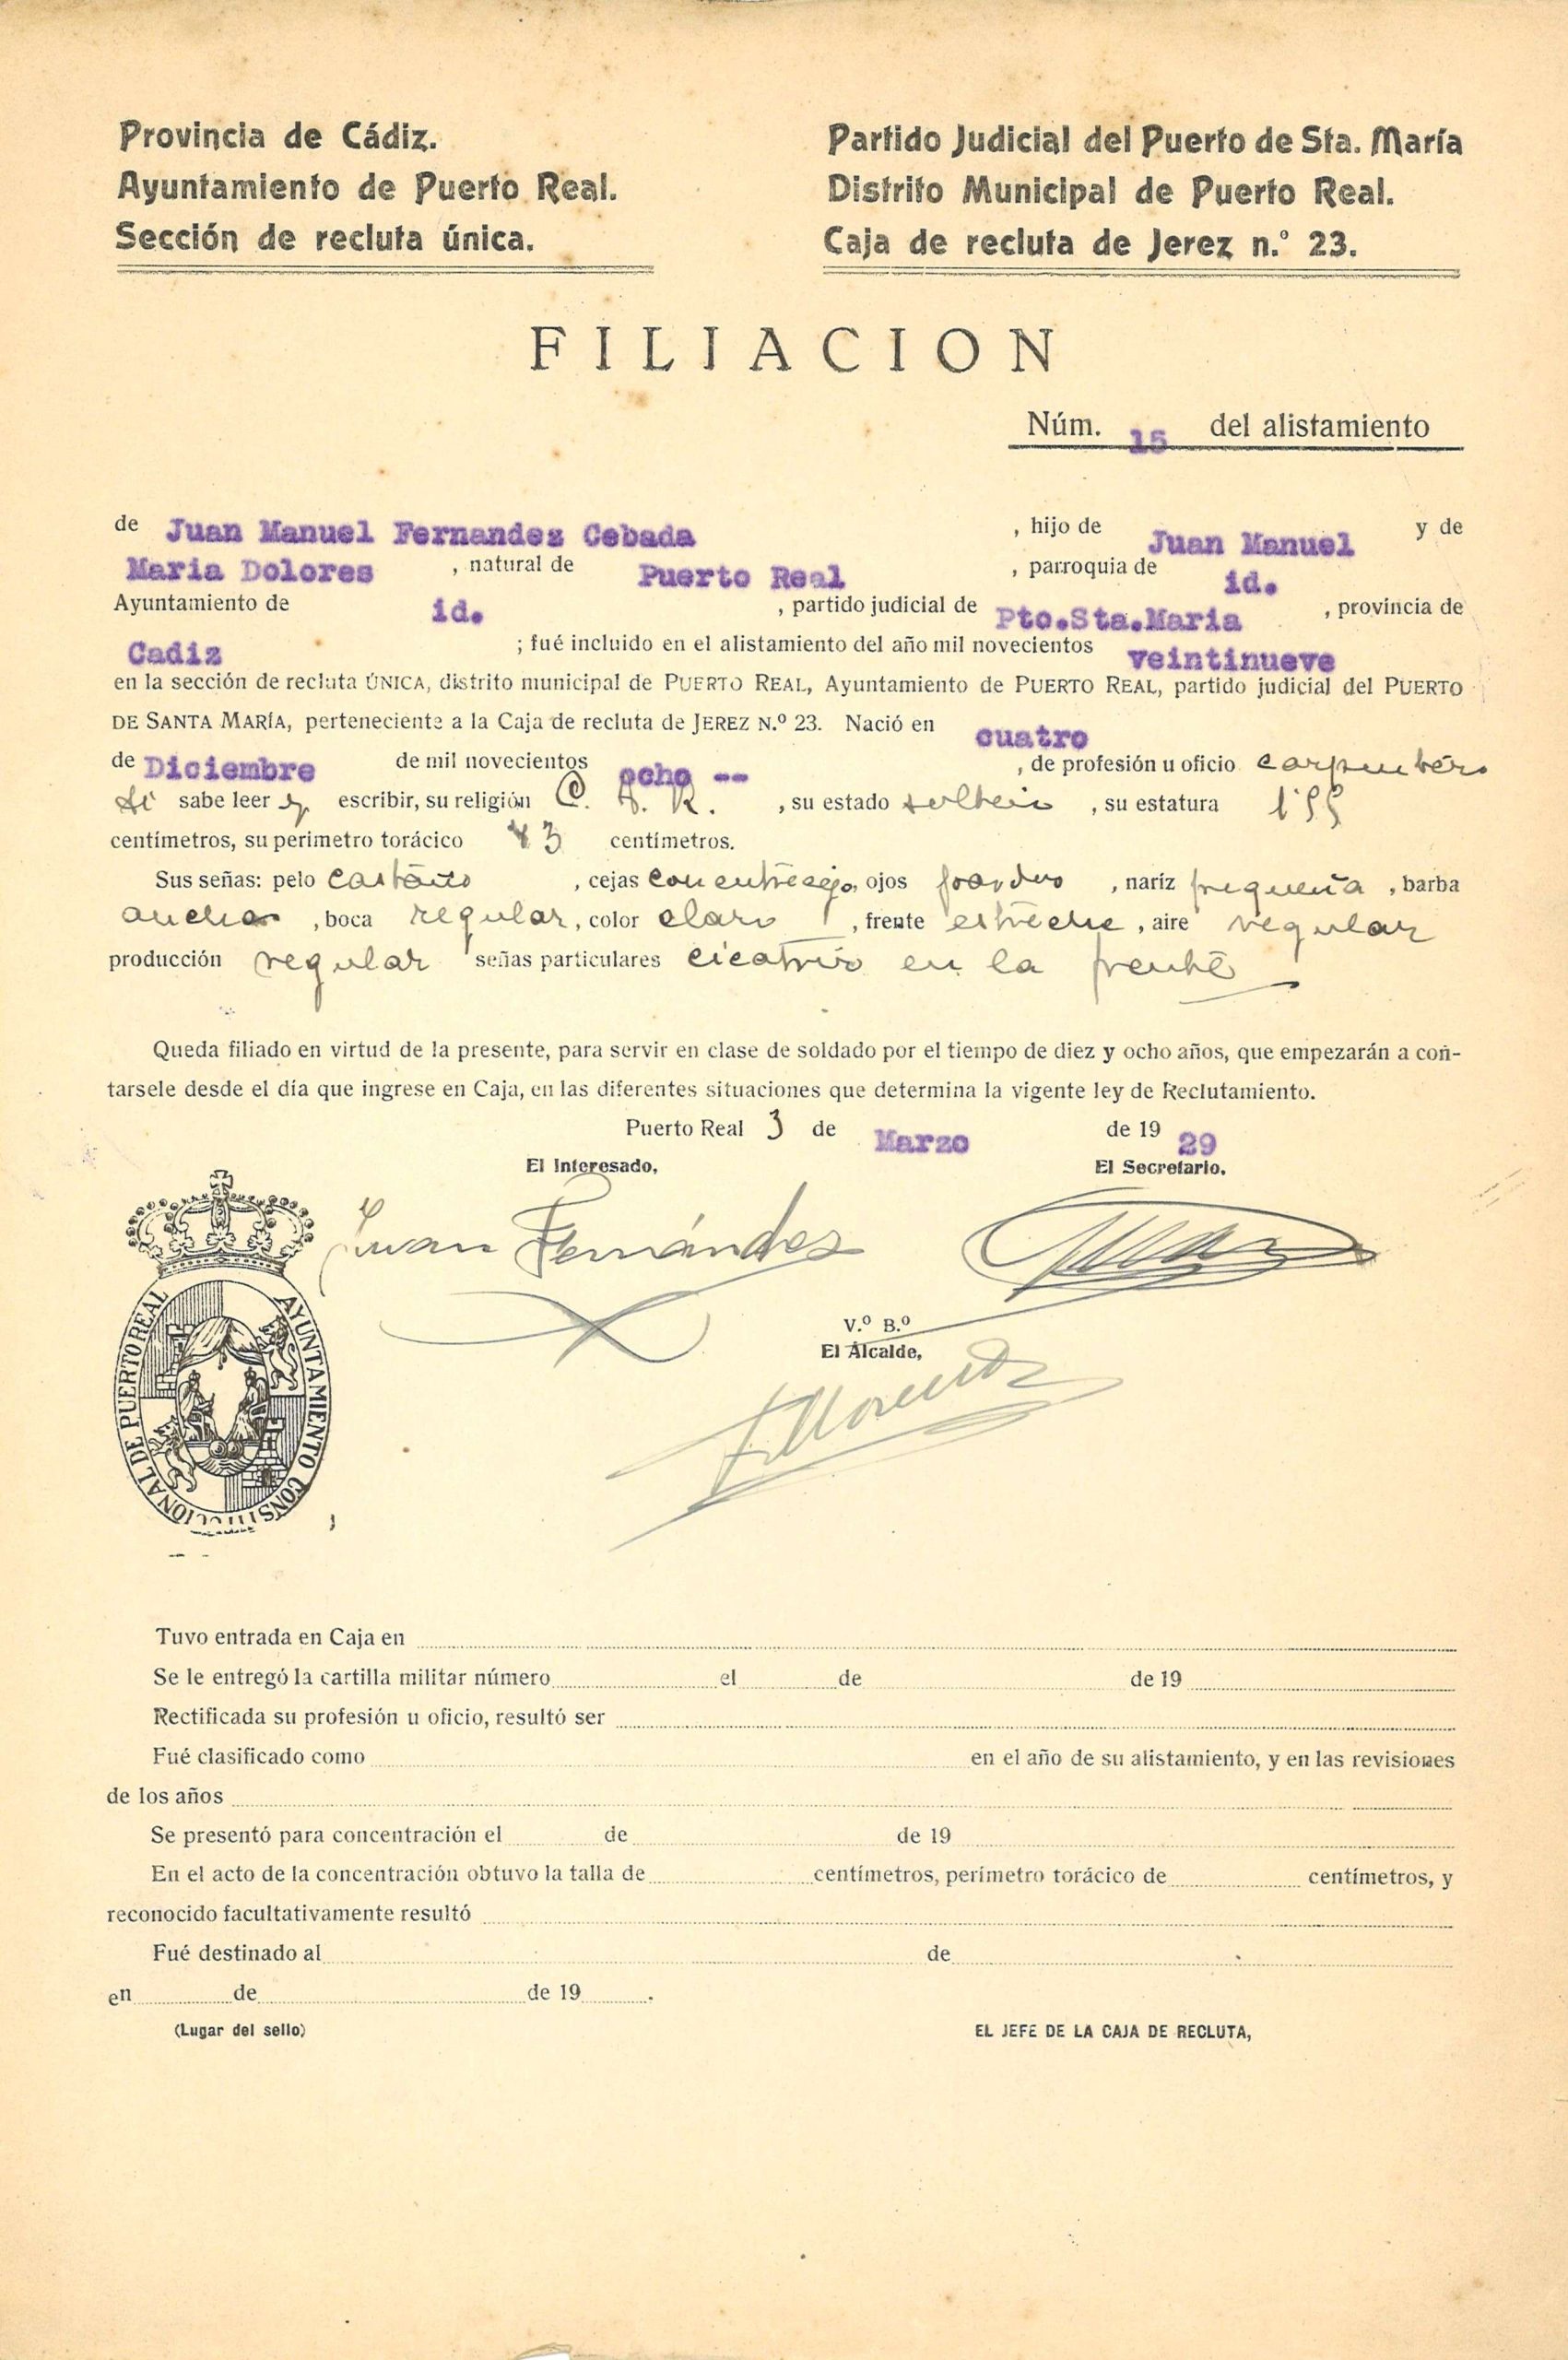 Provincia de Cádiz.
Ayuntamiento de Puerto Real.
Sección de recluta única.
Partido Judicial del Puerto de Sta. María
Distrito Municipal de Puerto Real.
Caja de recluta de Jerez n.º 23.
FILIACION
Núm. 15 del alistamiento
de Juan Manuel Fernandez Cebada , hijo de Juan Manuel y de
Maria Dolores , natural de Puerto Real , parroquia de id.
Ayuntamiento de id. , partido judicial de Pto.Sta.Maria , provincia de
Cadiz ; fué incluido en el alistamiento del año mil novecientos veintinueve
en la sección de recluta ÚNICA, distrito municipal de PUERTO REAL, Ayuntamiento de PUERTO REAL, partido judicial del PUERTO
DE SANTA MARÍA, perteneciente a la Caja de recluta de JEREZ N.º 23. Nació en cuatro
de Diciembre de mil novecientos ocho -- , de profesión u oficio carpintero
si sabe leer y escribir, su religión C. A. R. , su estado soltero , su estatura 1'55
centímetros, su perimetro torácico 43 centímetros.
Sus señas: pelo castaño , cejas con entrecejo, ojos pardos , naríz pequeña , barba
ancha , boca regular, color claro , frente estrecha , aire regular
producción regular señas particulares cicatriz en la frente
Queda filiado en virtud de la presente, para servir en clase de soldado por el tiempo de diez y ocho años, que empezarán a con-
tarsele desde el día que ingrese en Caja, en las diferentes situaciones que determina la vigente ley de Reclutamiento.
Puerto Real 3 de Marzo de 19 29
El Interesado,
El Secretario,
Juan Fernández
V.º B.º
El Alcalde,
AYUNTAMIENTO CONSTITUCIONAL DE PUERTO REAL
Tuvo entrada en Caja en
Se le entregó la cartilla militar número el de de 19
Rectificada su profesión u oficio, resultó ser
Fué clasificado como en el año de su alistamiento, y en las revisiones
de los años
Se presentó para concentración el de de 19
En el acto de la concentración obtuvo la talla de centímetros, perímetro torácico de centímetros, y
reconocido facultativamente resultó
Fué destinado al de
en de de 19 .
(Lugar del sello)
EL JEFE DE LA CAJA DE RECLUTA,